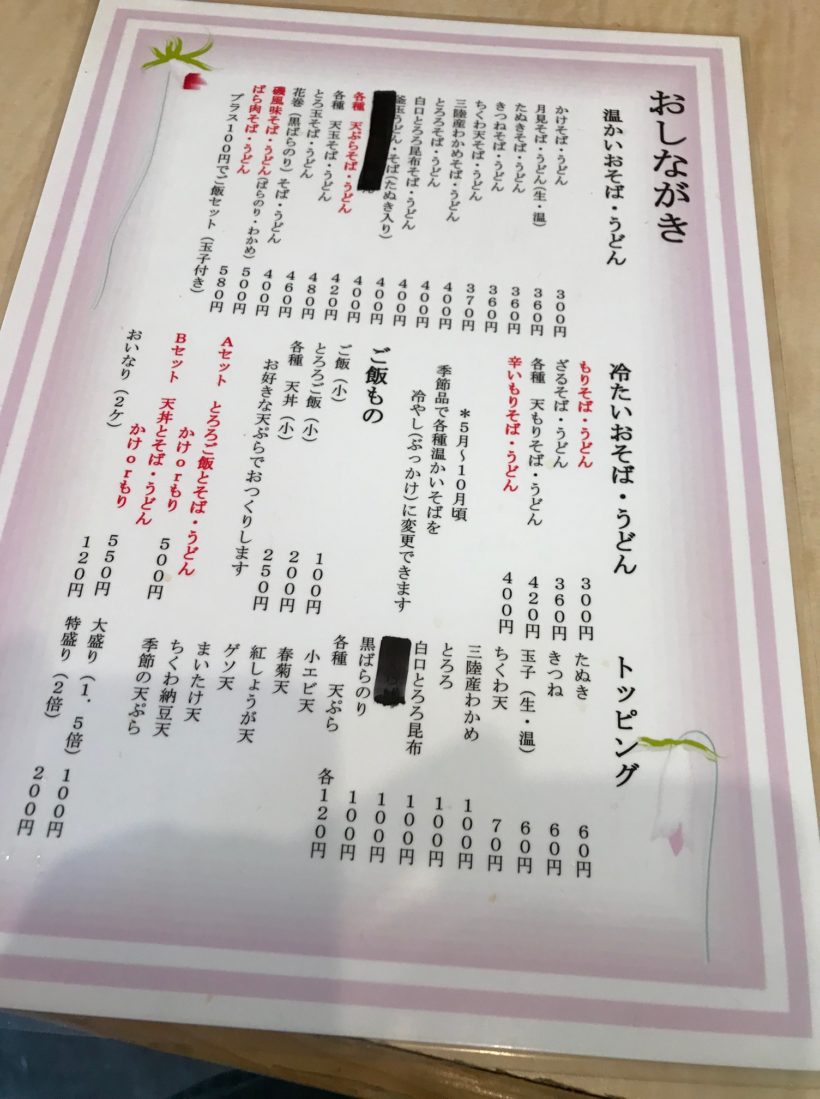 おしながき
温かいおそば・うどん
かけそば・うどん 300円
月見そば・うどん(生・温) 360円
たぬきそば・うどん 360円
きつねそば・うどん 360円
ちくわ天そば・うどん 370円
三陸産わかめそば・うどん 400円
とろろそば・うどん 400円
白口とろろ昆布そば・うどん 400円
釜玉うどん・そば(たぬき入り) 400円
400円
各種 天ぷらそば・うどん 420円
各種 天玉そば・うどん 480円
とろ玉そば・うどん 460円
花巻（黒ばらのり）そば・うどん 400円
磯風味そば・うどん(ばらのり・わかめ) 500円
ばら肉そば・うどん 580円
プラス100円でご飯セット（玉子付き）
冷たいおそば・うどん
もりそば・うどん 300円
ざるそば・うどん 360円
各種 天もりそば・うどん 420円
辛いもりそば・うどん 400円
＊5月〜10月頃
季節品で各種温かいそばを
冷やし(ぶっかけ)に変更できます
ご飯もの
ご飯（小） 100円
とろろご飯（小） 200円
各種 天丼（小） 250円
お好きな天ぷらでおつくりします
Aセット とろろご飯とそば・うどん
かけorもり 500円
Bセット 天丼とそば・うどん
かけorもり 550円
おいなり（2ケ） 120円
トッピング
たぬき 60円
きつね 60円
玉子（生・温） 60円
ちくわ天 70円
三陸産わかめ 100円
とろろ 100円
白口とろろ昆布 100円
100円
黒ばらのり 100円
各種 天ぷら 各120円
小エビ天
春菊天
紅しょうが天
ゲソ天
まいたけ天
ちくわ納豆天
季節の天ぷら
大盛り（1．5倍） 100円
特盛り（2倍） 200円